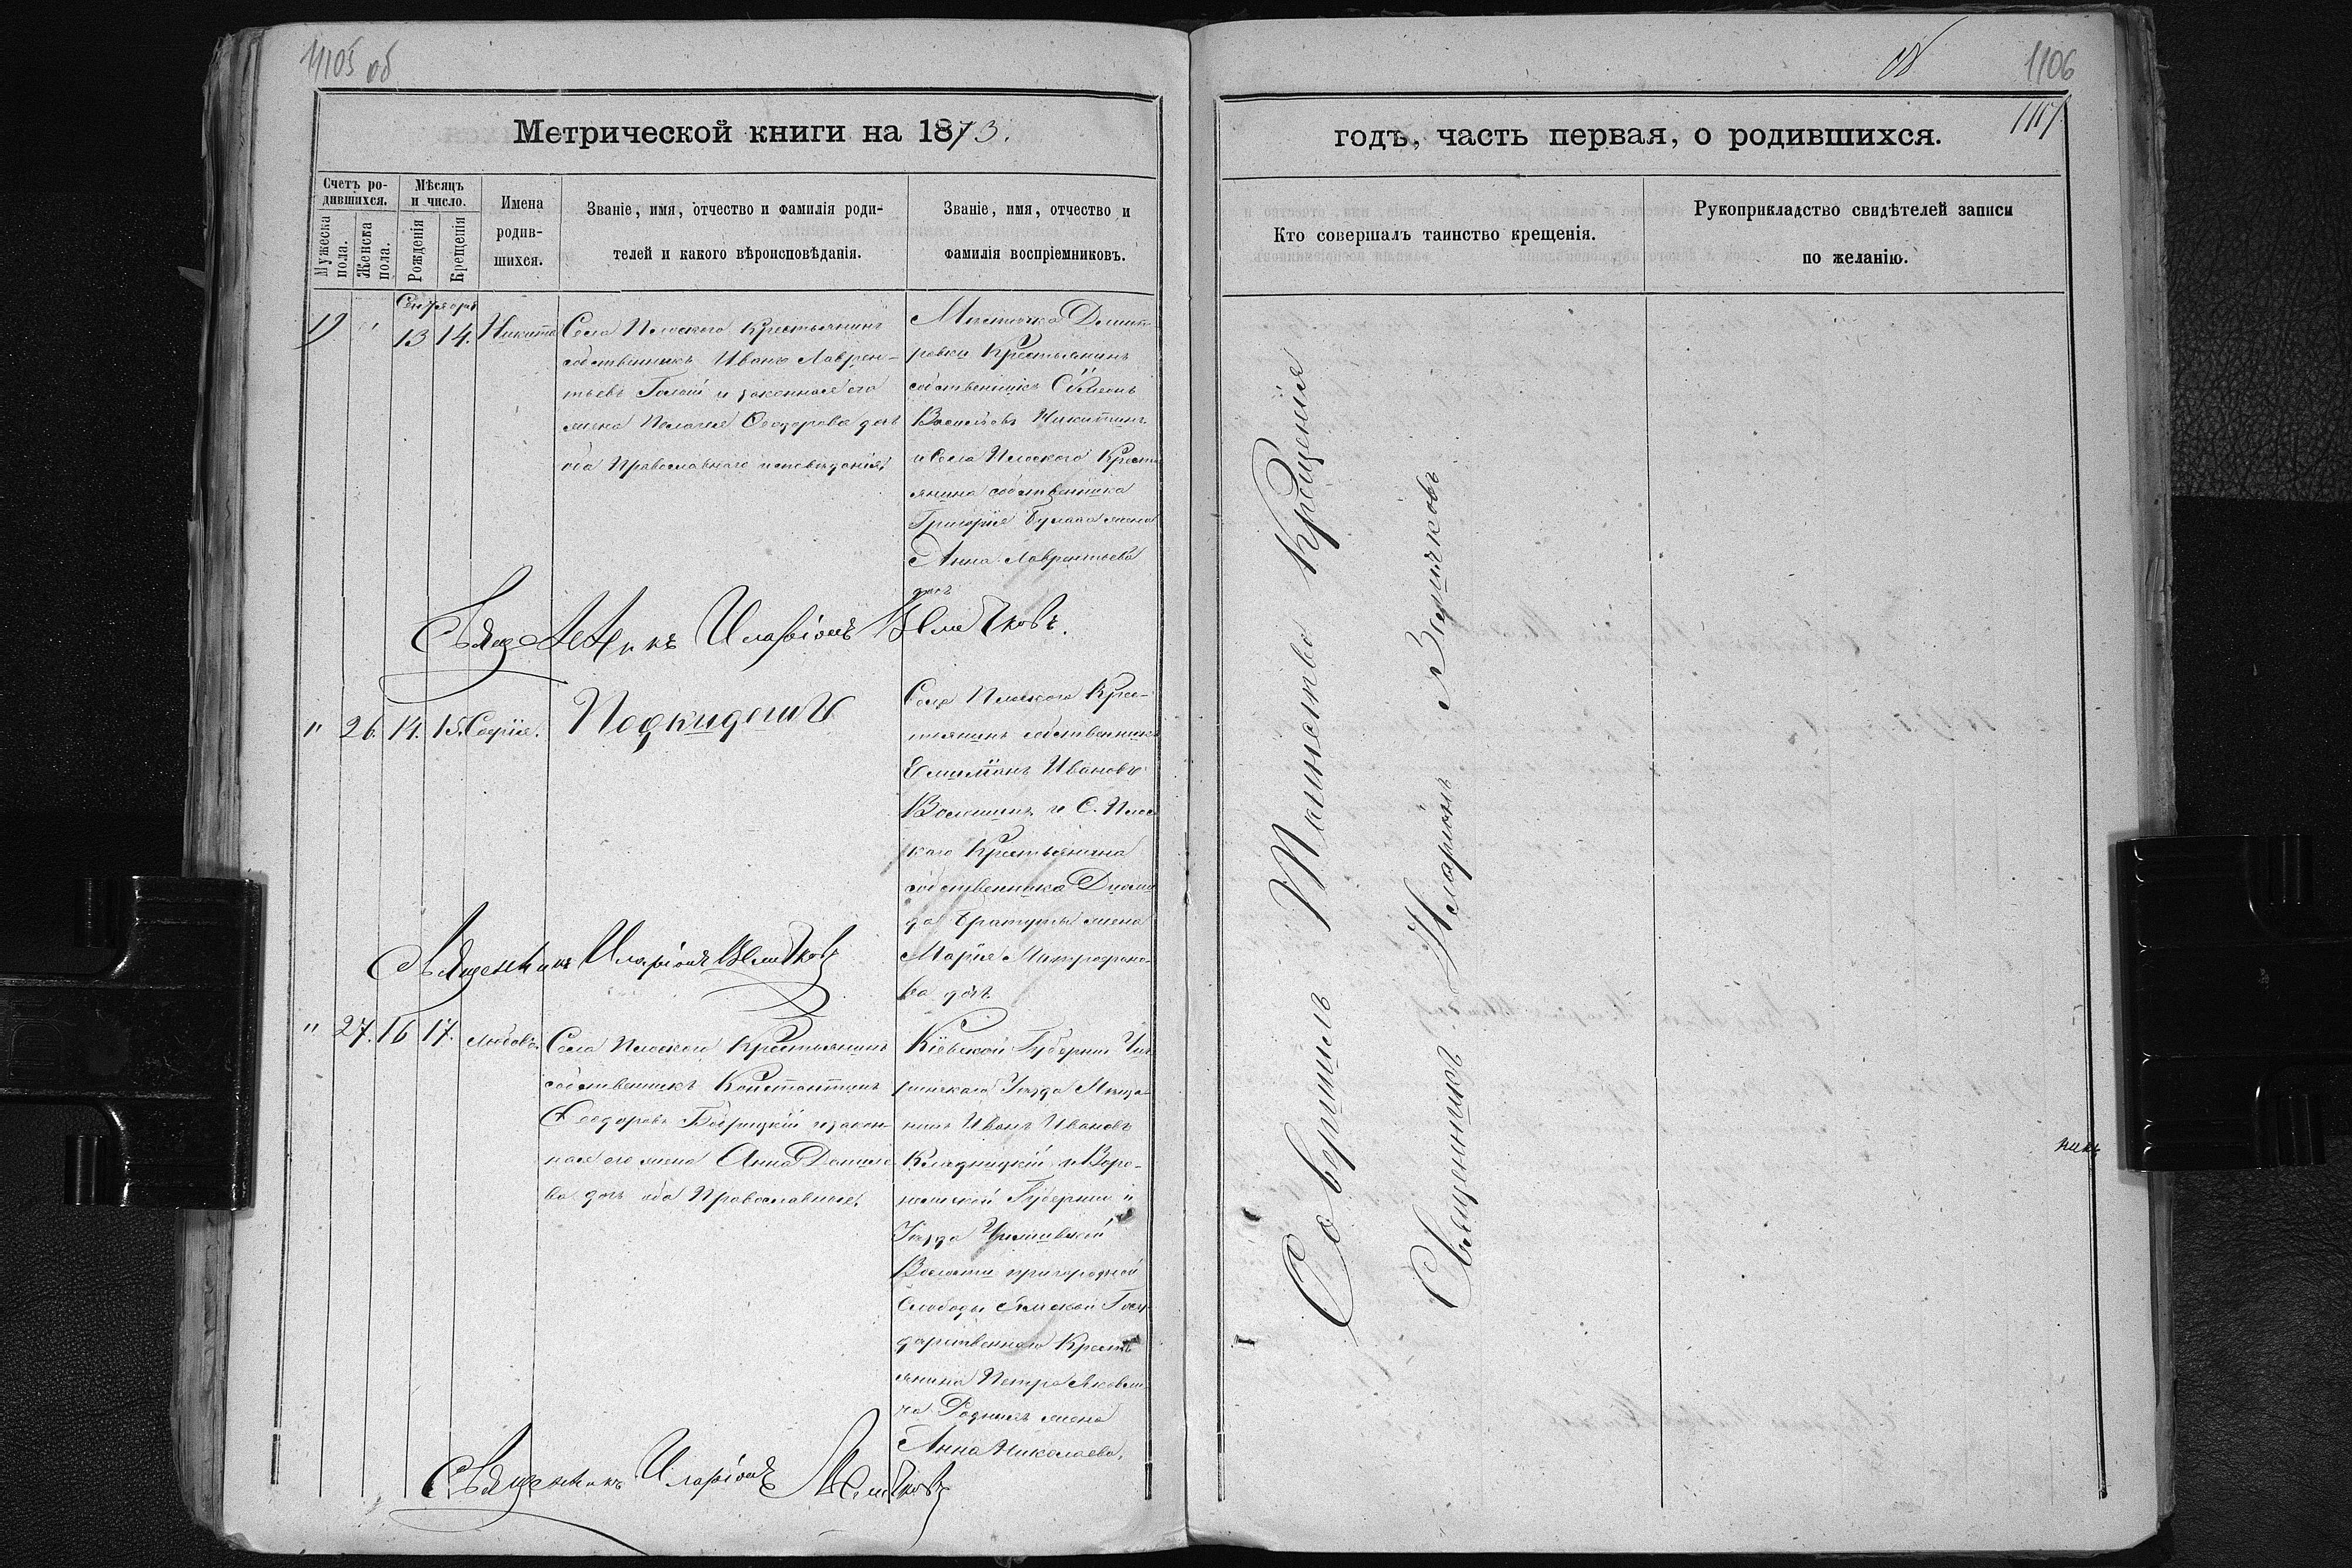 1105 об
Метрической книги на 1873.
Счетъ родившихся.
Мужеска пола.
Женска пола.
Мѣсяцъ и число.
Рожденія
Крещенія
Имена родившихся.
Званіе, имя, отчество и фамилія роди-
телей и какого вѣроисповѣданія.
Званіе, имя, отчество и
фамилія воспріемниковъ.
Сентябрь
13 14. Никита
Села Плоского Крестьянинъ
собственникъ Иванъ Лаврен-
тьевъ Голый и законная его
жена Пелагея Ѳеодорова дочь
оба Православнаго исповѣданія
Мѣстечка Дмит-
ровки Крестьянинъ
собственникъ Симеонъ
Васильевъ Никитинъ
и Села Плоского Кресть
янина собственника
Григорія жена
Анна Лаврентьева
дочь
Священникъ Иларіонъ
" 26. 14. 15. Софія.
Подкидышъ
Села Плоского Крес-
тьянинъ собственникъ
Емиліанъ Ивановъ
Волошинъ и С. Плос
кого Крестьянина
собственника Диоми
да жена
Марія Митрофано-
ва дочь.
Священникъ Иларіонъ
" 27. 16 17. Любовь.
Села Плоского Крестьянинъ
собственникъ Константинъ
Ѳеодоровъ и закон-
ная его жена Анна Данило
ва дочь оба Православные
Кіевской Губерніи Чиг
ринскаго Уѣзда Мѣща
нинъ Иванъ Ивановъ
Кладницкій и Воро-
нежской Губерніи и
Уѣзда
Волости пригородной
Слободы Ямской Госу
дарственнаго Кресть
янина Петра Яковли
ча жена
Анна Николаева,
Священникъ Иларіонъ
об
1106
годъ, часть первая, о родившихся.
Кто совершалъ таинство крещенія.
Рукоприкладство свидѣтелей записи
по желанію.
Совершилъ Таинство Крещенія
Священникъ Иларіонъ